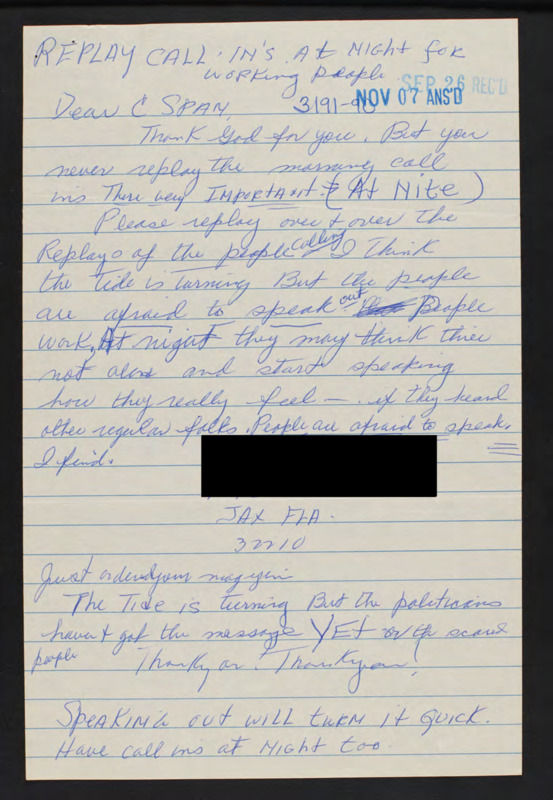 REPLAY CALL-IN'S At NIGHt foR
WORKing people
SEP 26 REC'D
Dear C SPAN, 3191-90
NOV 07 ANS'D
Thank God for you. But you
never replay the morning call
ins There very IMPORTAnt (At Nite)
Please replay over + over the
Replays of the people calling I Think
the tide is turning But the people
are afraid to speak out People
work. At night they may think thier
not alone and start speaking
how they really feel — if they heard
other regular folks. People are afraid to speak.
I find.
JAX FLA.
32210
Just ordered your magazin
The Tide is turning But the politicians
haven't got the message YEt or the scared
people Thank you. Thank you!
SpeaKING out will tuRN it Quick.
Have call ins at Night too.